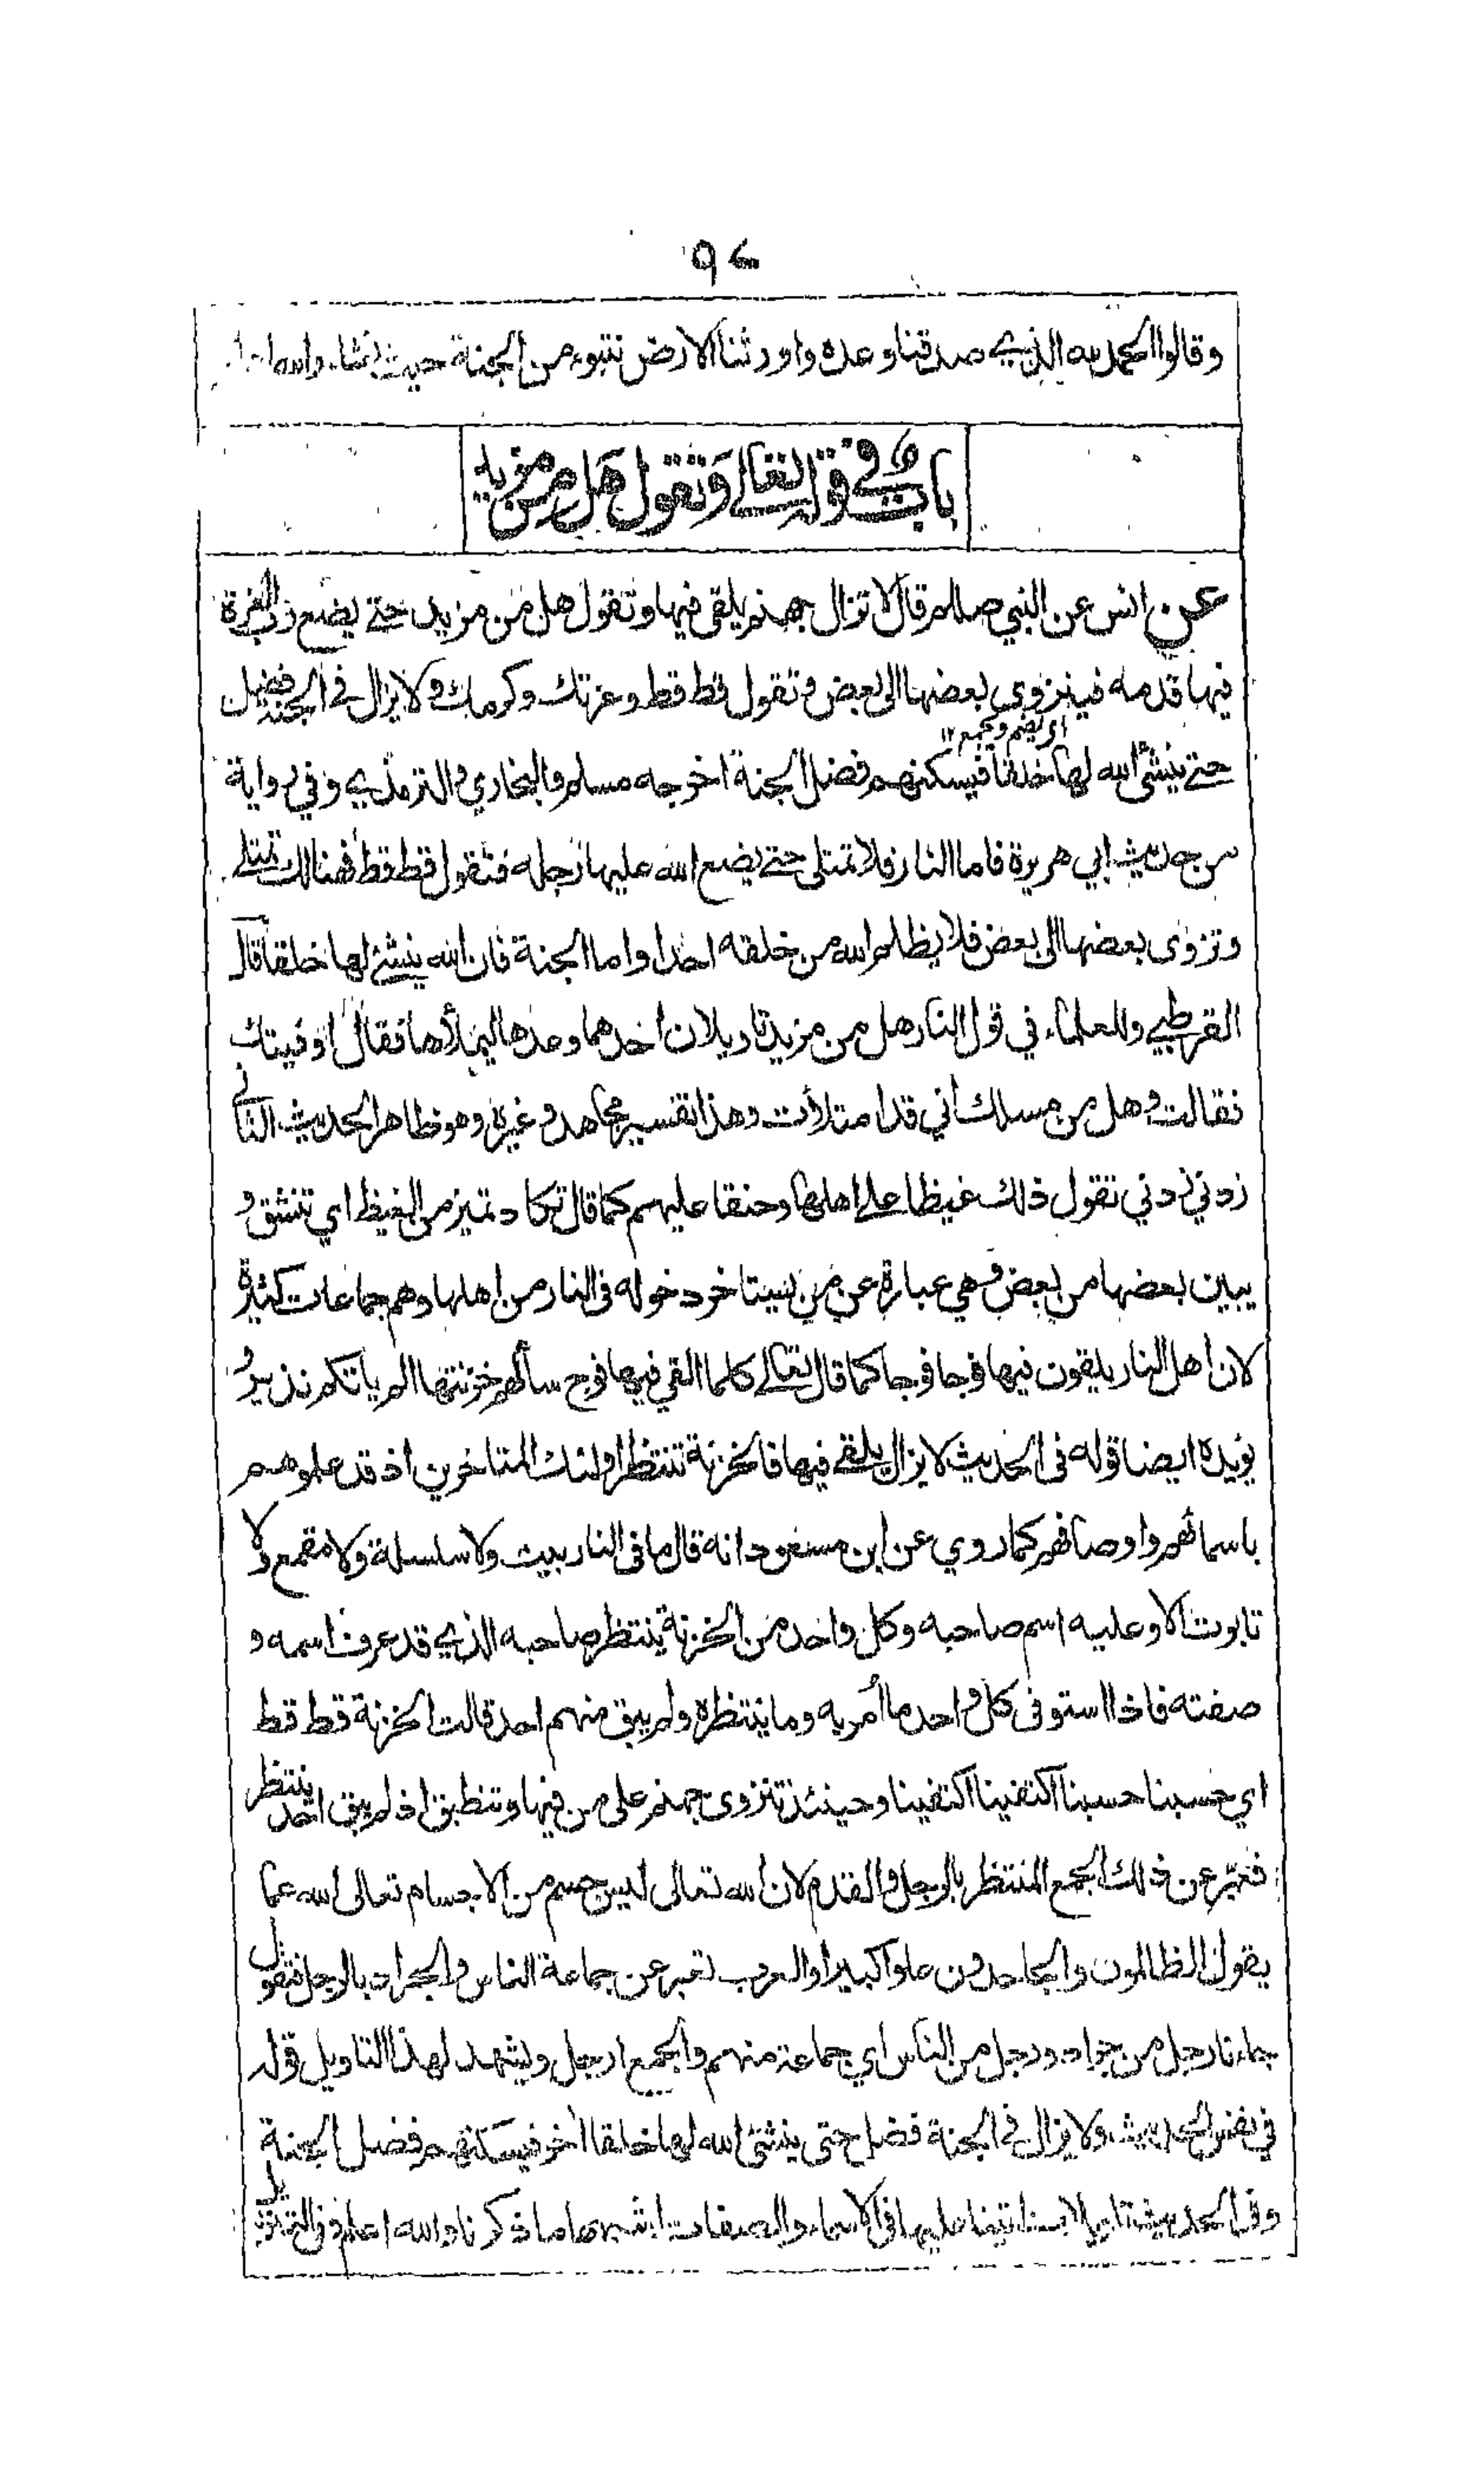 ٩٤
وقالوا الحمد لله الذي صدقنا وعده واورثنا الارض نتبوء من الجنة حيث نشاء والله
باب في قوله تعالى وتقول هل من مزيد
عن انس عن النبي صلم قال لا تزال جهنم يلقى فيها وتقول هل من مزيد حتى يضع رب العزة
فيها قدمه فينزوي بعضها الى بعض وتقول قط قط وعزتك وكرمك ولا يزال في الجنة فضل
اي يضم ويجمع ١٢
حتى ينشئ الله لها خلقا فيسكنهم فضل الجنة اخرجه مسلم والبخاري والترمذي وفي رواية
من حديث ابي هريرة فاما النار فلا تمتلى حتى يضع الله عليها رجله فتقول قط قط فهنالك تمتلى
وتزوى بعضها الى بعض فلا يظلم الله من خلقه احدا واما الجنة فان الله ينشئ لها خلقا قال
القرطبي وللعلماء في قول النار هل من مزيد تاويلان احدهما وعدها ليملأها فقال اوفيتك
فقالت وهل من مسلك اني قد امتلأت وهذا تفسير مجاهد وغيره وهو ظاهر الحديث الثاني
زدني زدني تقول ذلك غيظا على اهلها وحنقا عليهم كما قال تكاد تميز من الغيظ اي تنشق و
يبين بعضها من بعض وهي عبارة عن من يتاخر دخوله في النار من اهلها وهم جماعات كثيرة
لان اهل النار يلقون فيها فوجا فوجا كما قال تعالى كلما القي فيها فوج سألهم خزنتها الم ياتكم نذير و
يؤيده ايضا قوله في الحديث لا يزال يلقى فيها فالخزنة تنتظر اولئك المتاخرين اذ قد علموهم
باسمائهم واوصافهم كما روي عن ابن مسعود انه قال ما في النار بيت ولا سلسلة ولا مقمع ولا
تابوت الا وعليه اسم صاحبه وكل واحد من الخزنة ينتظر صاحبه الذي قد عرف اسمه و
صفته فاذا استوفى كل واحد ما أمر به وما ينتظره ولم يبق منهم احد قالت الخزنة قط قط
اي حسبنا حسبنا اكتفينا اكتفينا وحينئذ تنزوى جهنم على من فيها وتنطبق اذ لم يبق احد ينتظر
فعبّر عن ذلك الجمع المنتظر بالرجل والقدم لان الله تعالى ليس جسم من الاجسام تعالى الله عما
يقول الظالمون والجاحدون علوا كبيرا والعرب تعبر عن جماعة الناس والجراد بالرجل فتقول
جاءنا رجل من جراد ورجل من الناس اي جماعة منهم والجمع ارجل ويشهد لهذا التاويل قوله
في نفس الحديث ولا يزال في الجنة فضل حتى ينشئ الله لها خلقا أخر فيسكنهم فضل الجنة
وفي الحديث تاويلات اتينا عليها في الاسماء والصفات اشبهها ما ذكرنا والله اعلم وفي